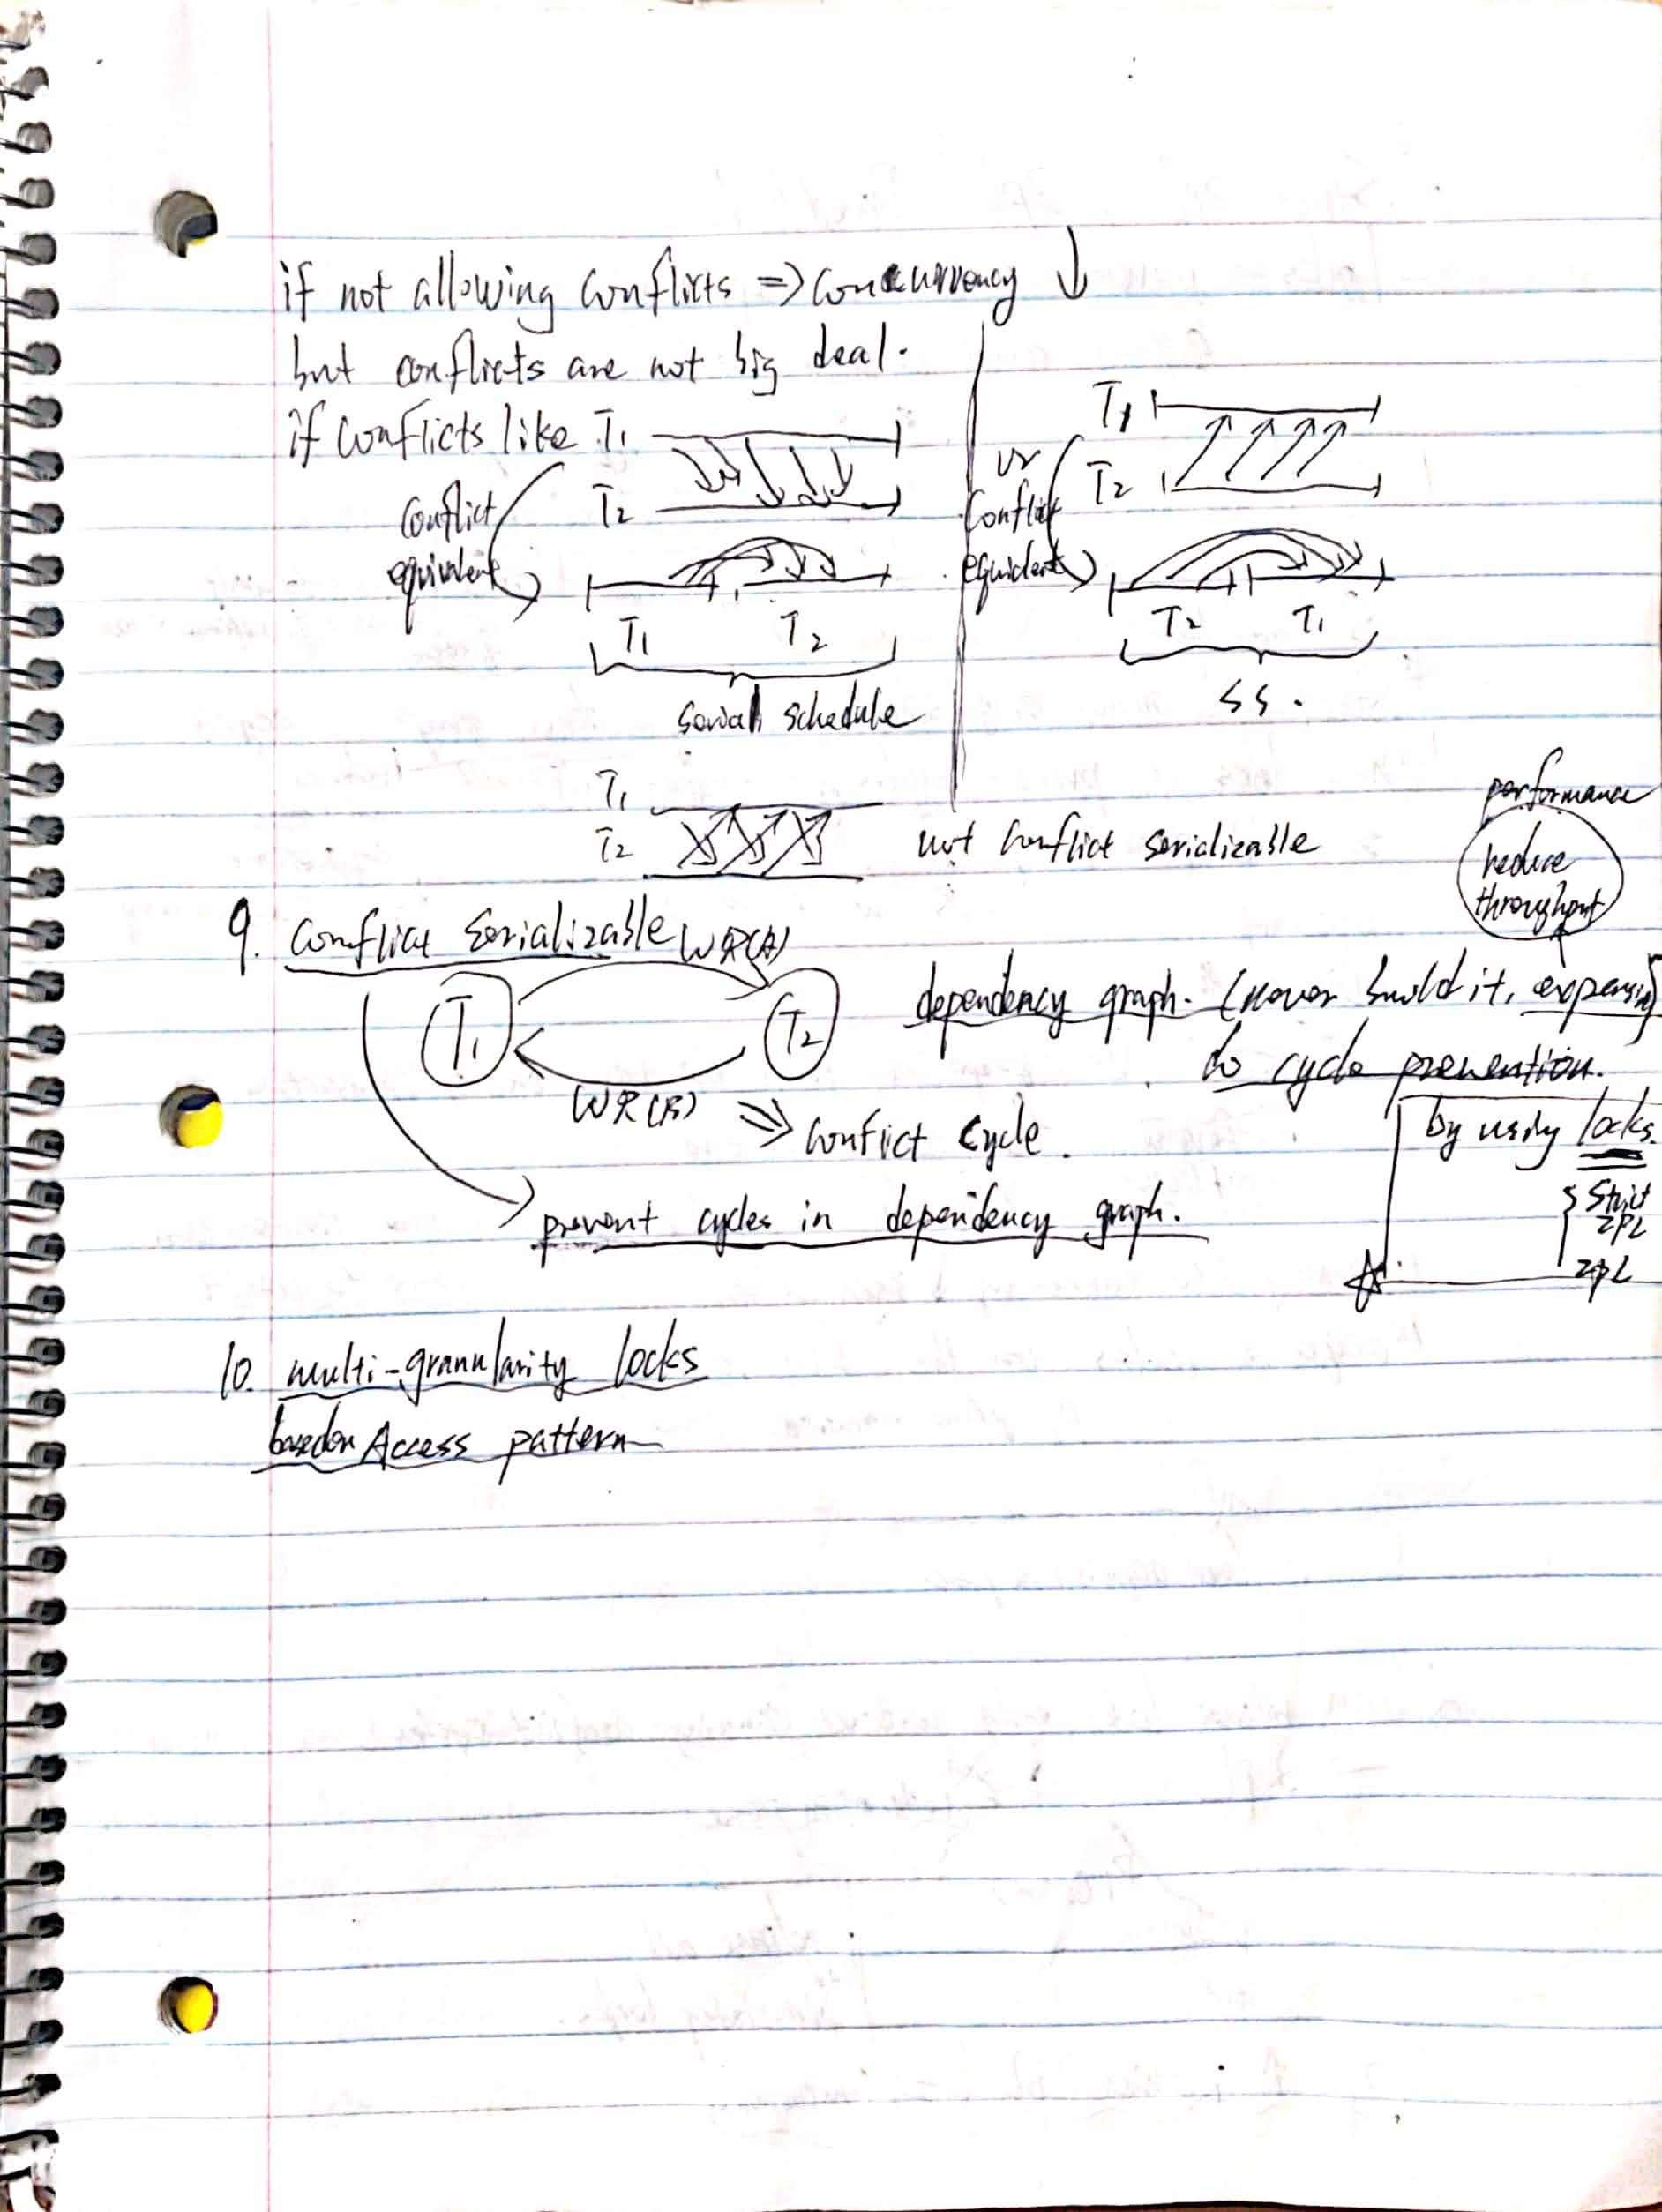 if not allowing conflicts => concurrency ↓
but conflicts are not big deal.
if conflicts like T1
T2
conflict
equivalent
T1 T2
serial schedule
or
conflict
equivalent
T1
T2
T2 T1
SS.
T1
T2
not conflict serializable
performance
reduce
throughput
9. conflict serializable
WR(A)
T1 T2
WR(B)
=> conflict cycle.
dependency graph. (never build it, expensive)
do cycle prevention.
by using locks.
Strict
2PL
2PL
prevent cycles in dependency graph.
10. multi-granularity locks
based on Access pattern